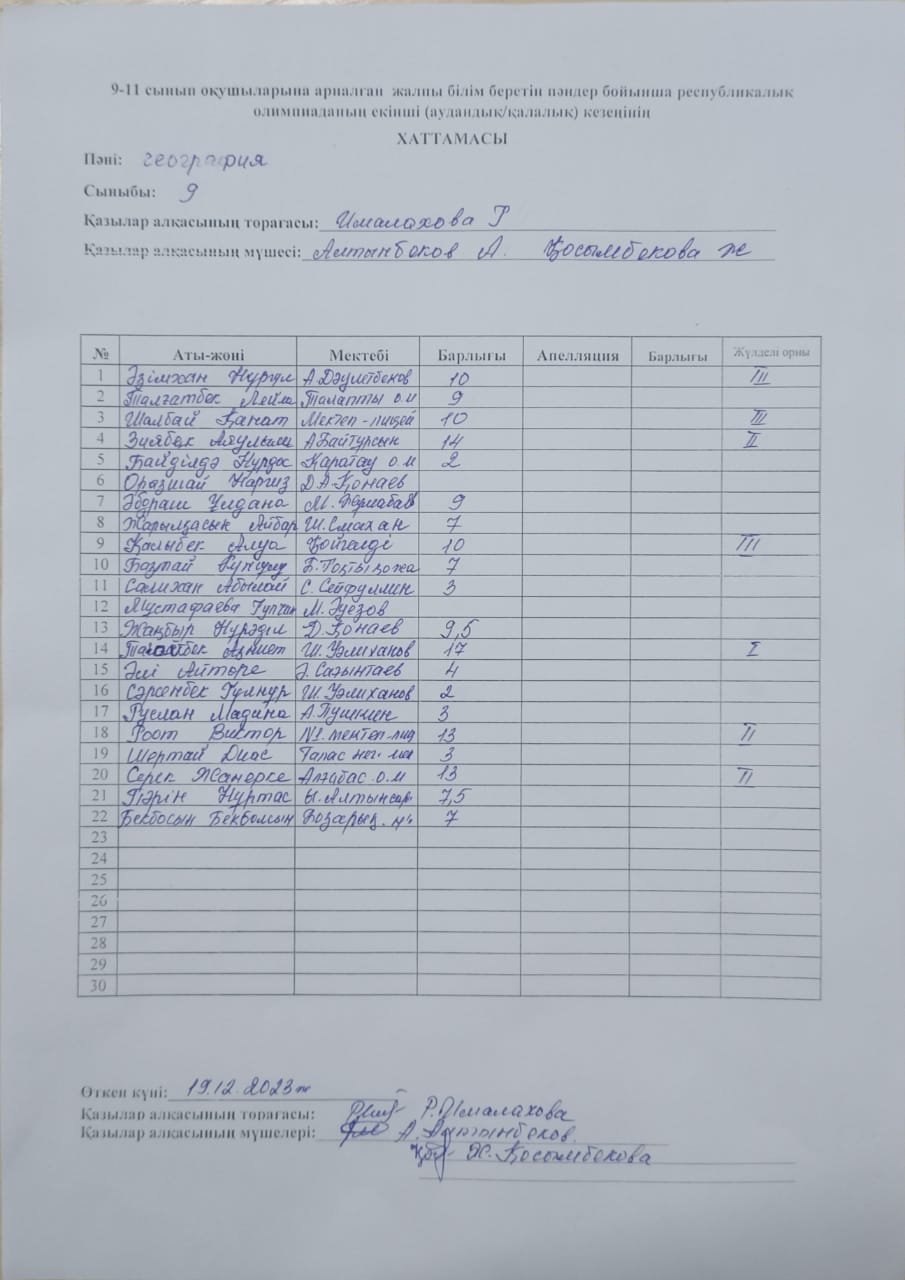 9-11 сынып оқушыларына арналған жалпы білім беретін пәндер бойынша республикалық
олимпиаданың екінші (аудандық/қалалық) кезеңінің
ХАТТАМАСЫ
Пәні: география
Сыныбы: 9
Қазылар алқасының торағасы: Исмалахова Р
Қазылар алқасының мүшесі: Алтынбеков А. Қосымбекова Ж
№ Аты-жөні Мектебі Барлығы Апелляция Барлығы Жүлделі орны
1 Әзімхан А.Дәулетбеков 10 III
2 Талғатбек Лейла Талапты о.м 9
3 Шалбай Қанат Мектеп-лицей 10 III
4 Зиябек А.Байтұрсын 14 II
5 Байділдә Нұрдос Қаратау о.м 2
6 Оразшай Наргиз Д.А.Қонаев
7 Әбдраш Ұлдана М. 9
8 Жарылқасын Айбар Ш.Смахан 7
9 Қалыбек Алуа Қойгелді 10 III
10 Бақтай Б.Тоқтықожа 7
11 Салихан Абылай С. Сейфуллин 3
12 Мустафаева М.Әуезов
13 Жаңбыр Нұрәділ Д.Қонаев 9,5
14 Ш.Уәлиханов 17 I
15 Әлі Айтөре Ә. Сағынтаев 4
16 Сәрсенбек Гүлнұр Ш.Уәлиханов 2
17 Руслан Мадина А.Пушкин 3
18 Роот Виктор №1 мектеп-лиц 13 II
19 Шертай Диас Талас 3
20 Серік Жанерке Алғабас о.м 13 II
21 Пәрін Нұртас Ы.Алтынсар 7,5
22 Бекбосын Бекболсын 7
23
24
25
26
27
28
29
30
Өткен күні: 19.12.2023ж
Қазылар алқасының торағасы: Р.Исмалахова
Қазылар алқасының мүшелері: А.Алтынбеков.
Ж. Қосымбекова